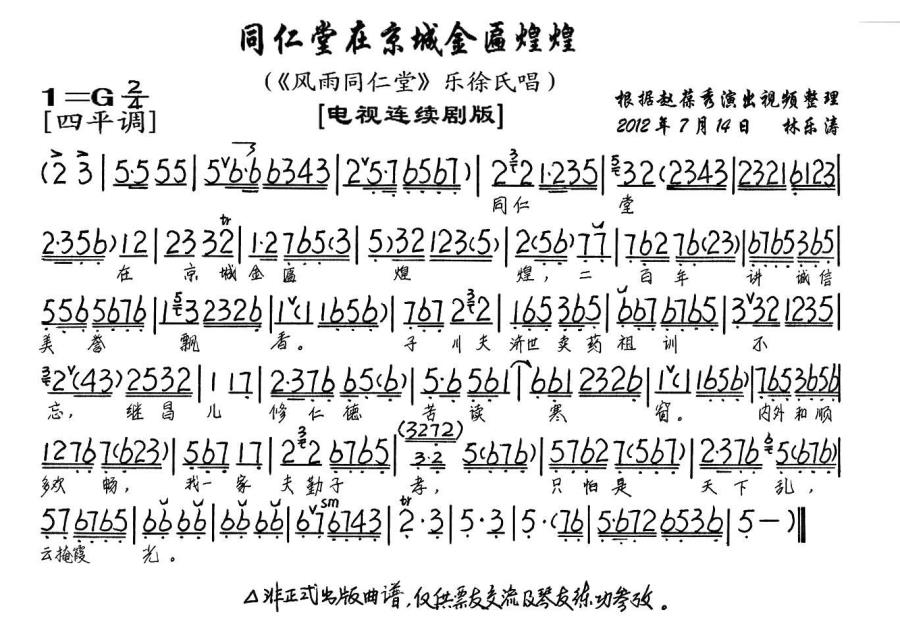 同仁堂在京城金匾煌煌
(《风雨同仁堂》乐徐氏唱)
1=G 2/4
[四平调]
[电视连续剧版]
根据赵葆秀演出视频整理
2012年7月14日 林乐涛
(2 3|5·5 5 5|5 6·6 6343|2 5·7 6567)|2 2 1·235|32(2343|23216123|
同仁 堂
2·356)12|23 32|1·2 765(3|5)32 123(5)|2(56)77|762 76(23)|6765365|
在 京 城金匾 煌 煌,二 百年 讲 诚信
556 5676|13 2326|1(1 1656)|767 2 2|165 365|667 6765|3 32 1235|
美 誉 飘 香。 子川夫济世卖药祖训 不
2(43)2532|1 17|2·376 65(6)|5·6 561|661 2326|1(1 1656)|7653656|
忘, 继昌儿 修仁德 苦读 寒 窗。 内外和顺
12767(623)|567 17|2 2 6765|(3272)3·2 5(676)|57627(567)|2·376 5(676)|
多欢 畅, 我一家夫勤子 孝, 只怕是 天下乱,
57 6765|66 66|66 66|67 6743|2·3|5·3|5·(76|5·672 6536|5—)‖
云掩霞 光。
△非正式出版曲谱,仅供票友交流及琴友练功参改。